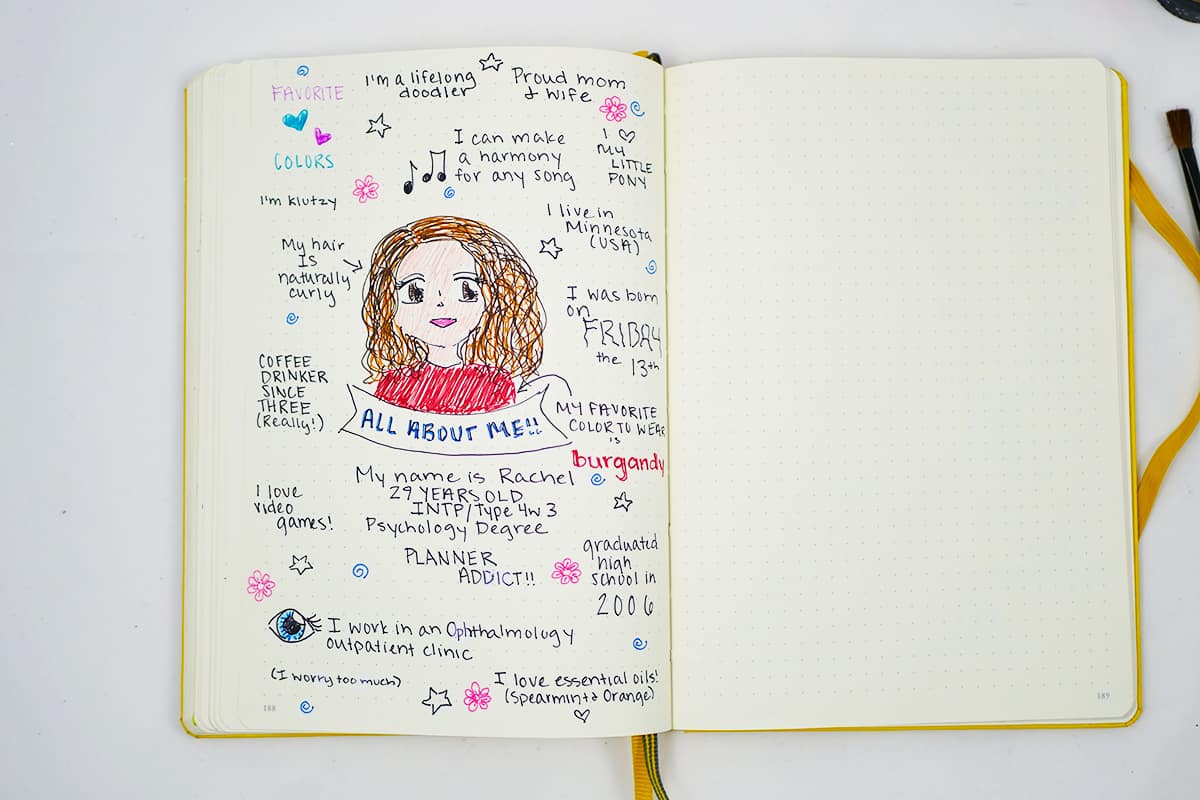 FAVORITE
COLORS
I'm a lifelong
doodler
Proud mom
& wife
I can make
a harmony
for any song
I ♡
My
LITTLE
PONY
I'm klutzy
I live in
Minnesota
(USA)
My hair
Is
naturally
curly
I was born
on
FRIDAY
the 13th
COFFEE
DRINKER
SINCE
THREE
(Really!)
ALL ABOUT ME!!
MY FAVORITE
COLOR TO WEAR
is
burgandy
My name is Rachel
29 YEARS OLD
INTP/Type 4w3
Psychology Degree
I love
video
games!
PLANNER
ADDICT!!
graduated
high
school in
2006
I work in an Ophthalmology
outpatient clinic
(I worry too much)
I love essential oils!
(Spearmint & Orange)
188
189